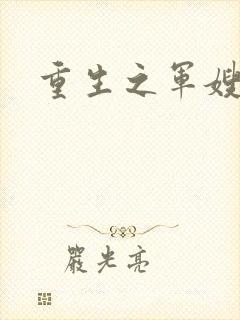 重生之军嫂
嚴光亮